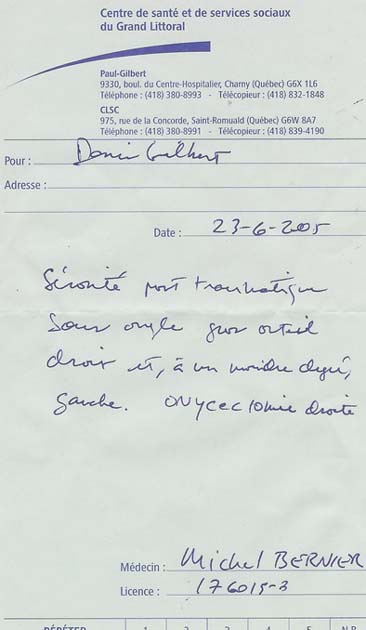 Centre de santé et de services sociaux
du Grand Littoral
Paul-Gilbert
9330, boul. du Centre-Hospitalier, Charny (Québec) G6X 1L6
Téléphone : (418) 380-8993 - Télécopieur : (418) 832-1848
CLSC
975, rue de la Concorde, Saint-Romuald (Québec) G6W 8A7
Téléphone : (418) 380-8991 - Télécopieur : (418) 839-4190
Pour : Gilbert
Adresse :
Date : 23-6-2005
post traumatique
sous ongle gros orteil
droit et, à un moindre degré,
gauche. ONYCECTOMIE droite
Médecin : Michel BERNIER
Licence : 176015-3
RÉPÉTER 1 2 3 4 5 N.R.